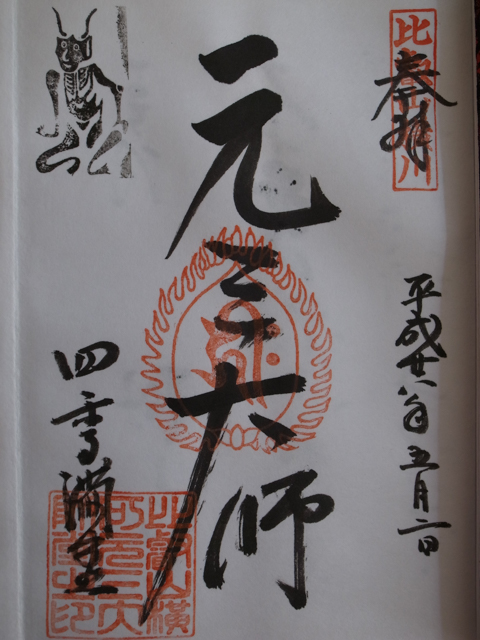 比叡山横川
奉拝
平成廿八年五月二日
元三大師
四季講堂
比叡山横
川元三大